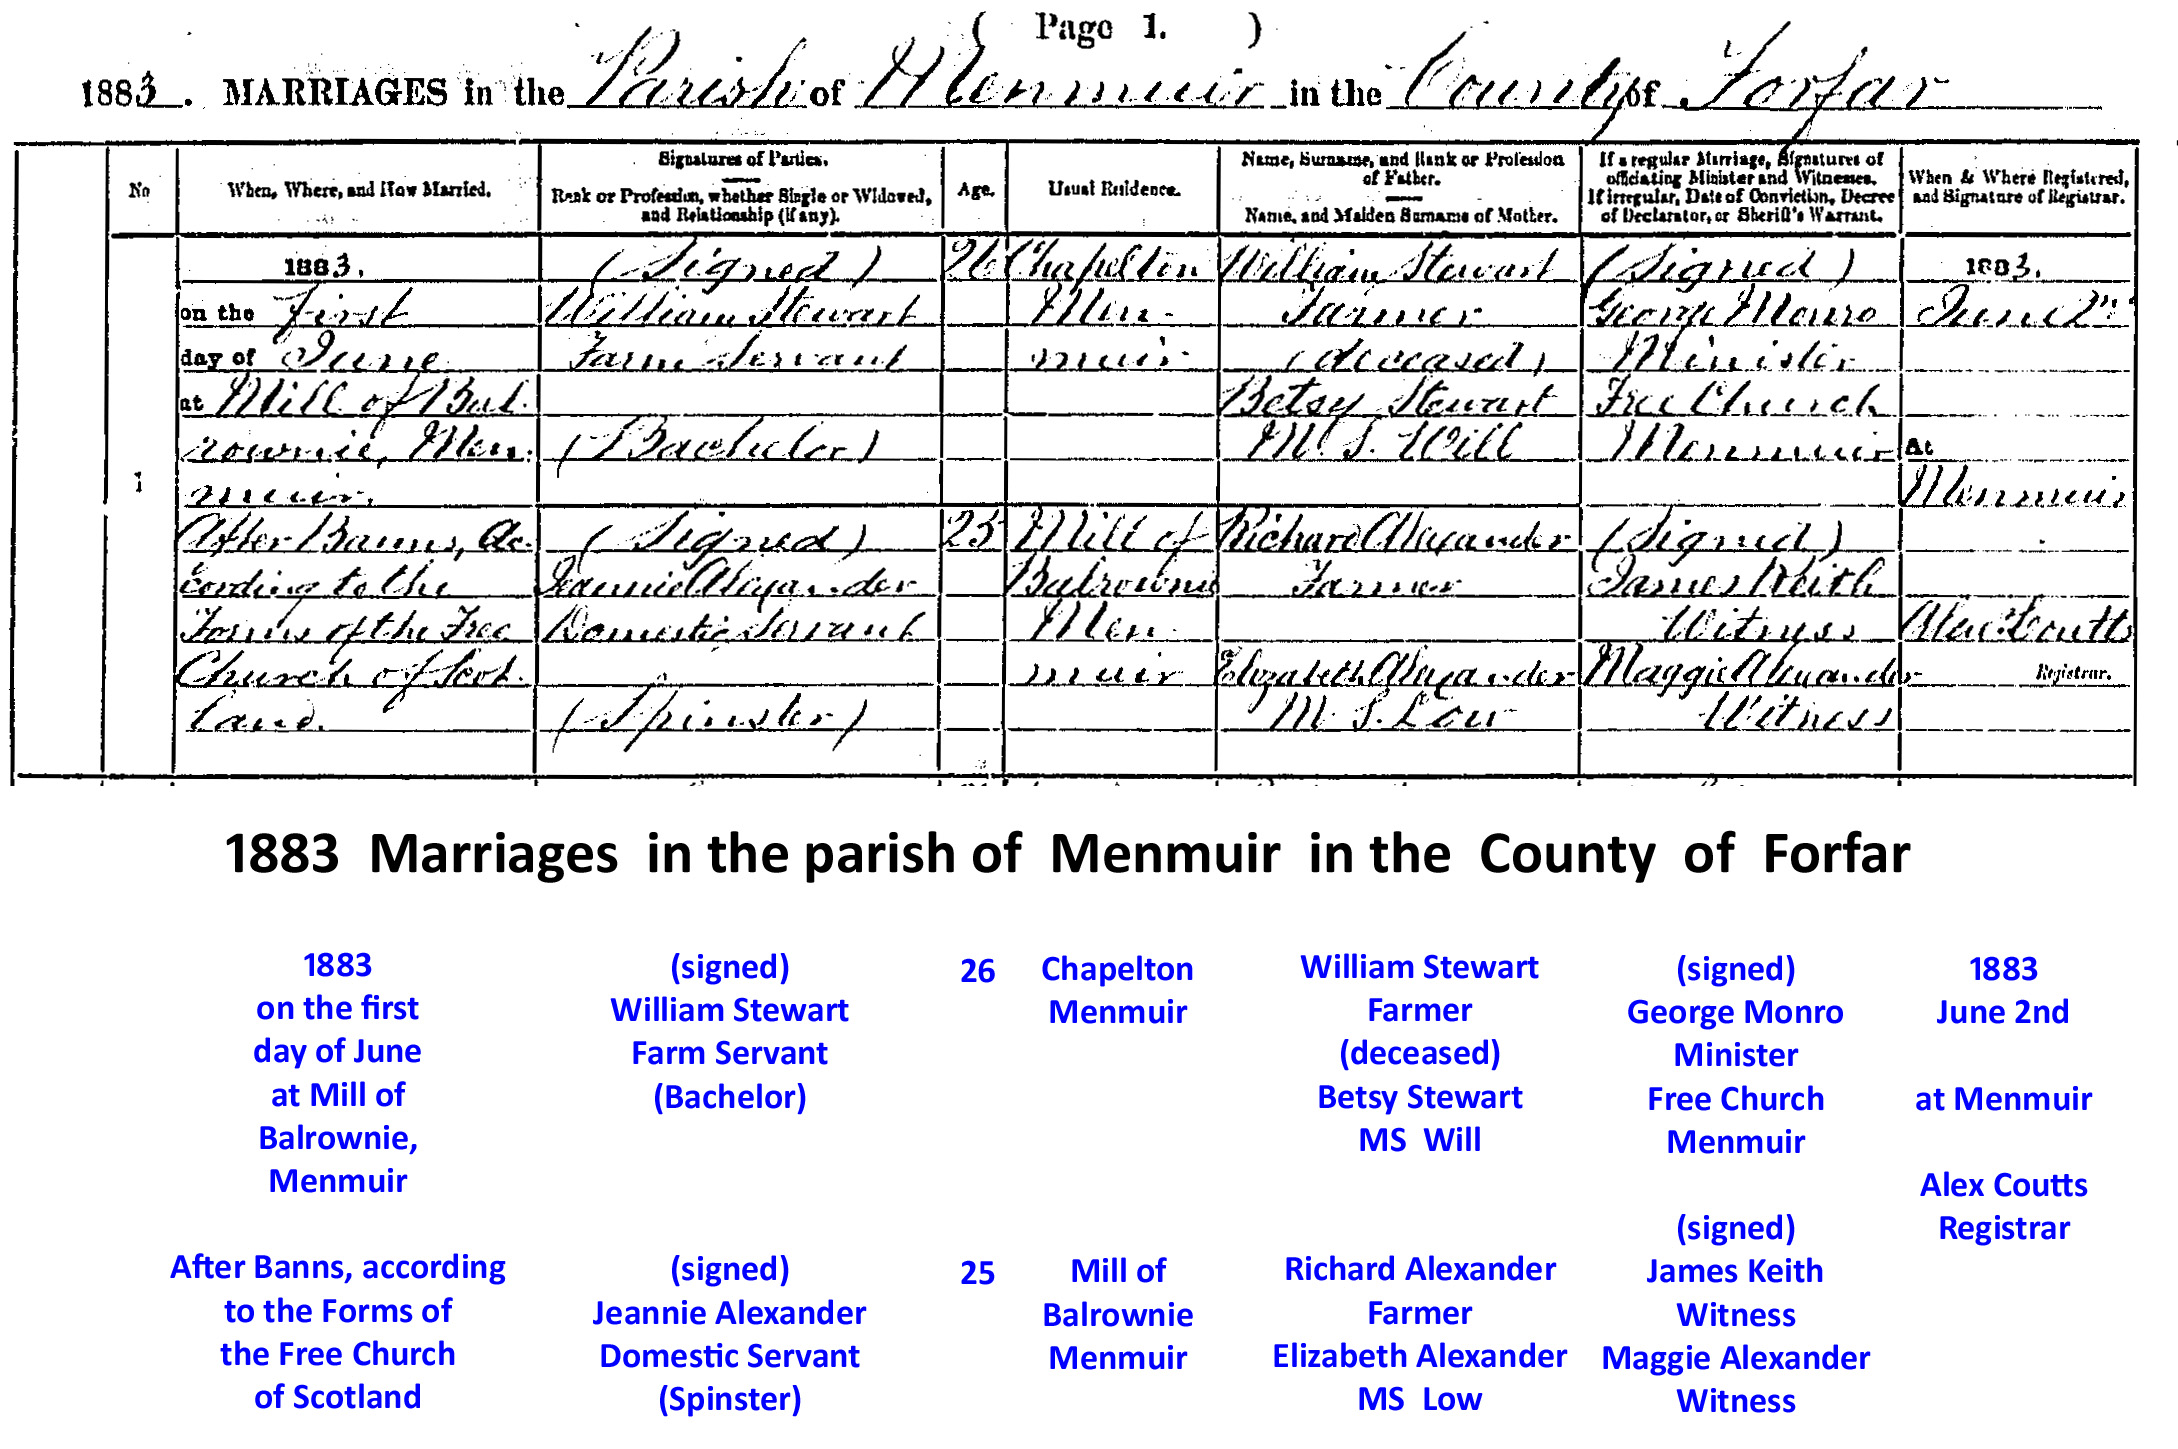 ( Page 1. )
1883. MARRIAGES in the Parish of Menmuir in the County of Forfar
No
When, Where, and How Married.
Signatures of Parties.
Rank or Profession, whether Single or Widowed,
and Relationship (if any).
Age.
Usual Residence.
Name, Surname, and Rank or Profession
of Father.
Name, and Maiden Surname of Mother.
If a regular Marriage, Signatures of
officiating Minister and Witnesses.
If irregular, Date of Conviction, Decree
of Declarator, or Sheriff's Warrant.
When & Where Registered,
and Signature of Registrar.
1
1883.
on the first
day of June
at Mill of Bal-
rownie, Men-
muir.
After Banns, Ac-
cording to the
Forms of the Free
Church of Scot-
land.
(Signed)
William Stewart
Farm Servant
(Bachelor)
(Signed)
Jeannie Alexander
Domestic Servant
(Spinster)
26
25
Chapelton
Men-
muir
Mill of
Balrownie
Men-
muir
William Stewart
Farmer
(deceased)
Betsy Stewart
M.S. Will
Richard Alexander
Farmer
Elizabeth Alexander
M.S. Low
(Signed)
George Monro
Minister
Free Church
Menmuir
(Signed)
James Keith
Witness
Maggie Alexander
Witness
1883.
June 2nd
At
Menmuir
Alex. Coutts
Registrar.
1883 Marriages in the parish of Menmuir in the County of Forfar
1883
on the first
day of June
at Mill of
Balrownie,
Menmuir
After Banns, according
to the Forms of
the Free Church
of Scotland
(signed)
William Stewart
Farm Servant
(Bachelor)
(signed)
Jeannie Alexander
Domestic Servant
(Spinster)
26
25
Chapelton
Menmuir
Mill of
Balrownie
Menmuir
William Stewart
Farmer
(deceased)
Betsy Stewart
MS Will
Richard Alexander
Farmer
Elizabeth Alexander
MS Low
(signed)
George Monro
Minister
Free Church
Menmuir
(signed)
James Keith
Witness
Maggie Alexander
Witness
1883
June 2nd
at Menmuir
Alex Coutts
Registrar